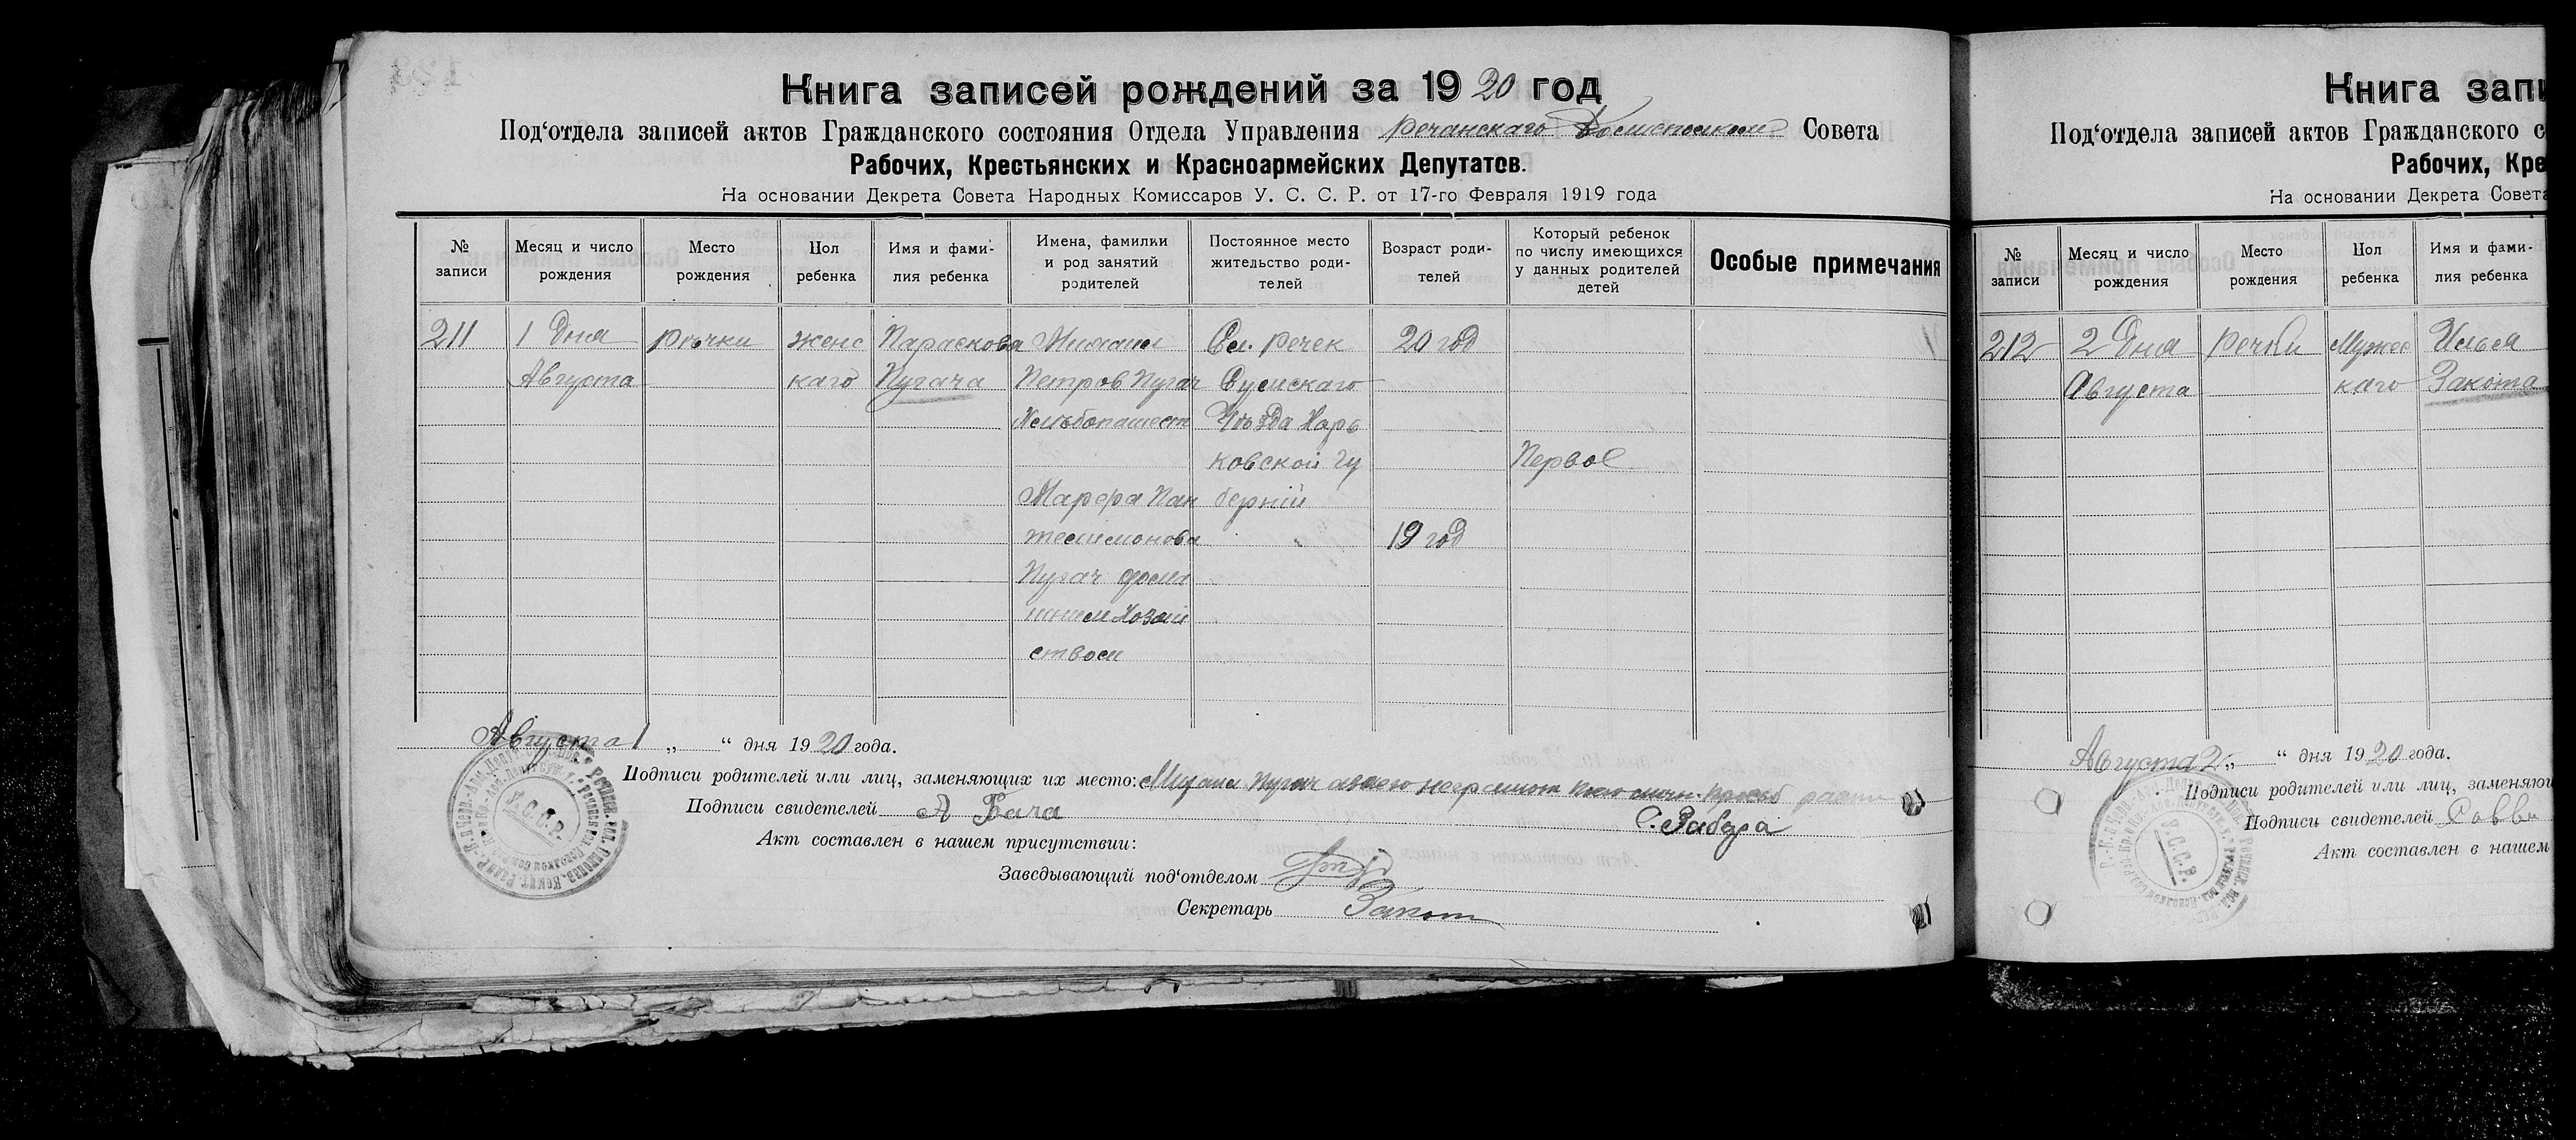 Книга записей рождений за 1920 год
Под‘отдела записей актов Гражданского состояния Отдела Управления Речанскаго Совета
Рабочих, Крестьянских и Красноармейских Депутатов.
На основании Декрета Совета Народных Комиссаров У. С. С. Р. от 17-го Февраля 1919 года
№ записи
Месяц и число рождения
Место рождения
Пол ребенка
Имя и фами-
лия ребенка
Имена, фамилии
и род занятий
родителей
Постоянное место
жительство роди-
телей
Возраст роди-
телей
Который ребенок
по числу имеющихся
у данных родителей
детей
Особые примечания
211
1 Дня
Августа
Рѣчки
женс
каго
Параскова
Пугача
Михаил
Петров Пугач
Хлѣбопашест
Марфа Пан
телимонова
Пугач
Хозяй
ством
Сл. Речек
Сумскаго
Уѣзда Харь
ковской гу
берніи
"
20 год
19 год
Первое
Августа 1 „ “ дня 1920 года.
Подписи родителей или лиц, заменяющих их место: Михаил Пугач
Подписи свидетелей А Бача
С. Забара
Акт составлен в нашем присутствии:
Заведывающий под‘отделом
Секретарь
У.С.С.Р.
Книга запи
Под‘отдела записей актов Гражданского с
Рабочих, Кре
На основании Декрета Совета
№ записи
Месяц и число рождения
Место рождения
Пол ребенка
Имя и фами-
лия ребенка
212
2 Дня
Августа
Речки
Мужес
каго
Илья
Закота
Августа 2 „ “ дня 1920 года.
Подписи родителей или лиц, заменяю
Подписи свидетелей
Акт составлен в нашем
У.С.С.Р.